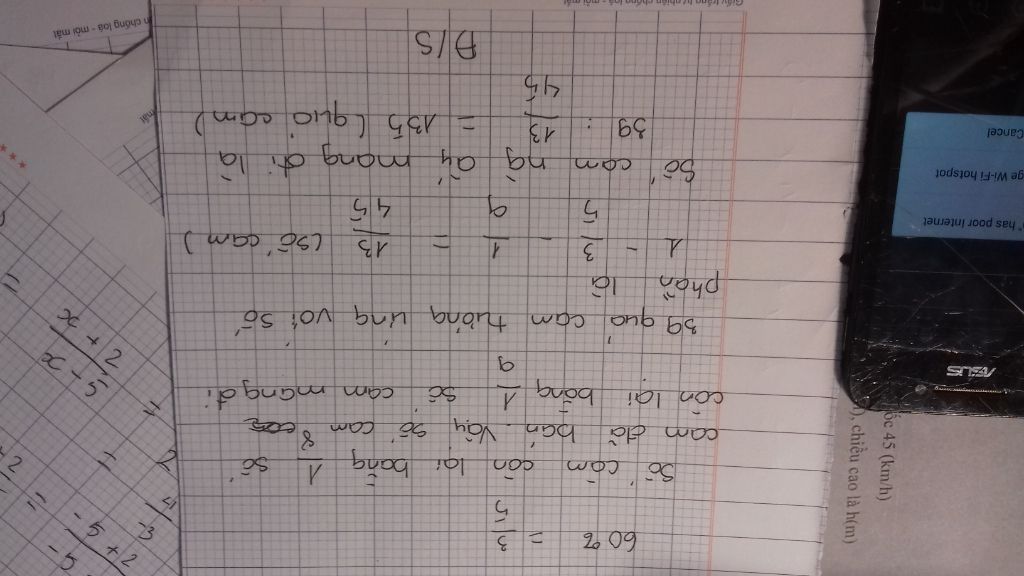 60% = 3/5
Số cam còn lại bằng 1/8 số
cam đã bán. Vậy số cam
còn lại bằng 1/9 số cam mang đi
39 quả cam tương ứng với số
phần là
1 - 3/5 - 1/9 = 13/45 (số cam)
Số cam ng ấy mang đi là
39 : 13/45 = 135 (quả cam)
Đ/S
Giấy trắng tự nhiên chống loá - mỏi mắt
n chống loá - mỏi mắt
mắt
x + 2
x - 5
=
- 5 + 2
- 5
=
-3
ASUS
" has poor Internet
ge Wi-Fi hotspot
Cancel
ốc 45 (km/h)
), chiều cao là h(m)